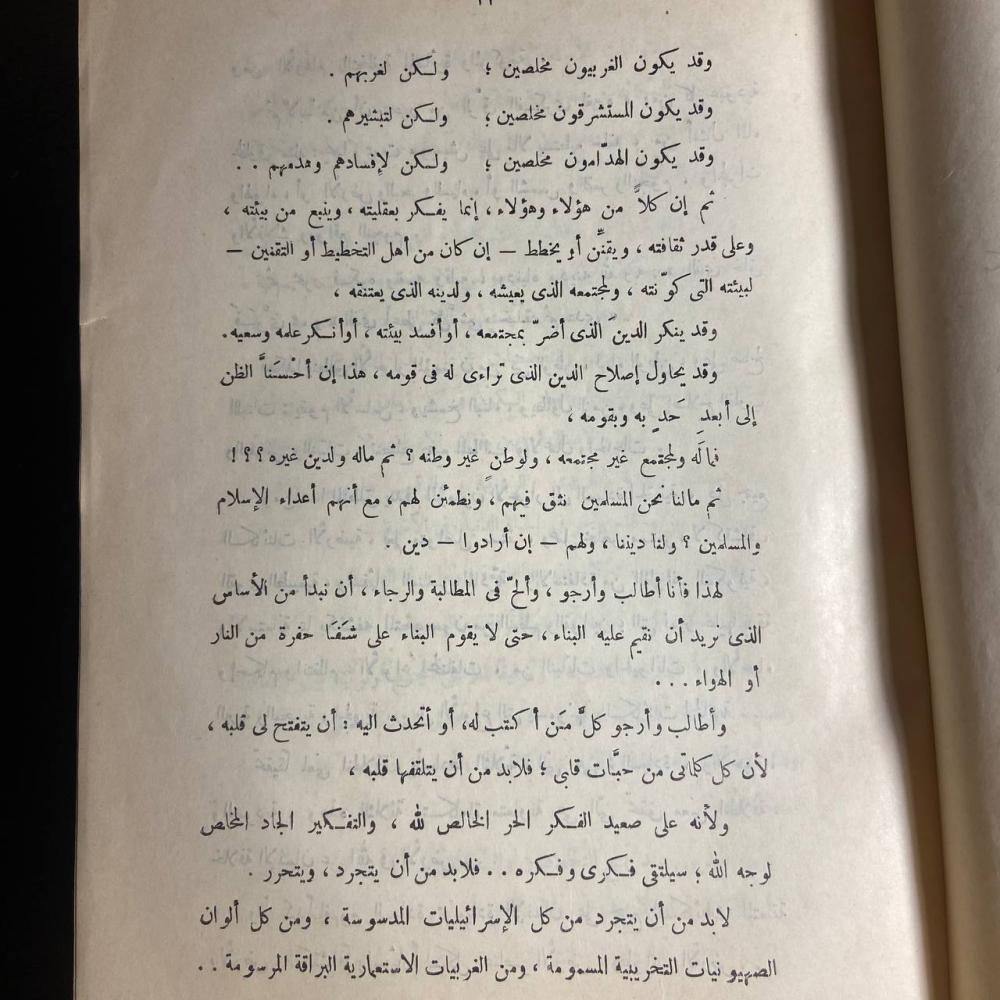 وقد يكون الغربيون مخلصين ؛ ولكن لغربهم .
وقد يكون المستشرقون مخلصين ؛ ولكن لتبشيرهم .
وقد يكون الهدّامون مخلصين ؛ ولكن لإفسادهم وهدمهم . .
ثم إن كلاًّ من هؤلاء وهؤلاء ، إنما يفكر بعقليته ، وينبع من بيئته ،
وعلى قدر ثقافته ، ويقنِّن أو يخطط — إن كان من أهل التخطيط أو التقنين —
لبيئته التى كوّنته ، ولمجتمعه الذى يعيشه ، ولدينه الذى يعتنقه ،
وقد ينكر الدينَ الذى أضرّ بمجتمعه ، أو أفسد بيئته ، أو أنكر علمه وسعيه.
وقد يحاول إصلاح الدين الذى تراءى له فى قومه ، هذا إن أحْسَنَّا الظن
إلى أبعد حَدٍ به وبقومه ،
فمالَه ولمجتمع غير مجتمعه ، ولوطنٍ غير وطنه ؟ ثم ماله ولدين غيره ؟؟؟!
ثم مالنا نحن المسلمين نثق فيهم، ونطمئن لهم ، مع أنهم أعداء الإسلام
والمسلمين ؟ ولنا ديننا ، ولهم — إن أرادوا — دين .
لهذا فأنا أطالب وأرجو ، وألحّ فى المطالبة والرجاء ، أن نبدأ من الأساس
الذى نريد أن نقيم عليه البناء ، حتى لا يقوم البناء على شَفَا حفرة من النار
أو الهواء . . .
وأطالب وأرجو كلَّ مَن أكتب له، أو أتحدث اليه : أن يتفتح لى قلبه ،
لأن كل كلماتى من حبَّات قلبى ؛ فلابد من أن يتلقفها قلبه ،
ولأنه على صعيد الفكر الحر الخالص لله ، والتفكير الجاد المخلص
لوجه الله ؛ سيلتقى فكرى وفكره . . فلابد من أن يتجرد ، ويتحرر .
لابد من أن يتجرد من كل الإسرائيليات المدسوسة ، ومن كل ألوان
الصهيونيات التخريبية المسمومة ، ومن الغربيات الاستعمارية البراقة المرسومة . .